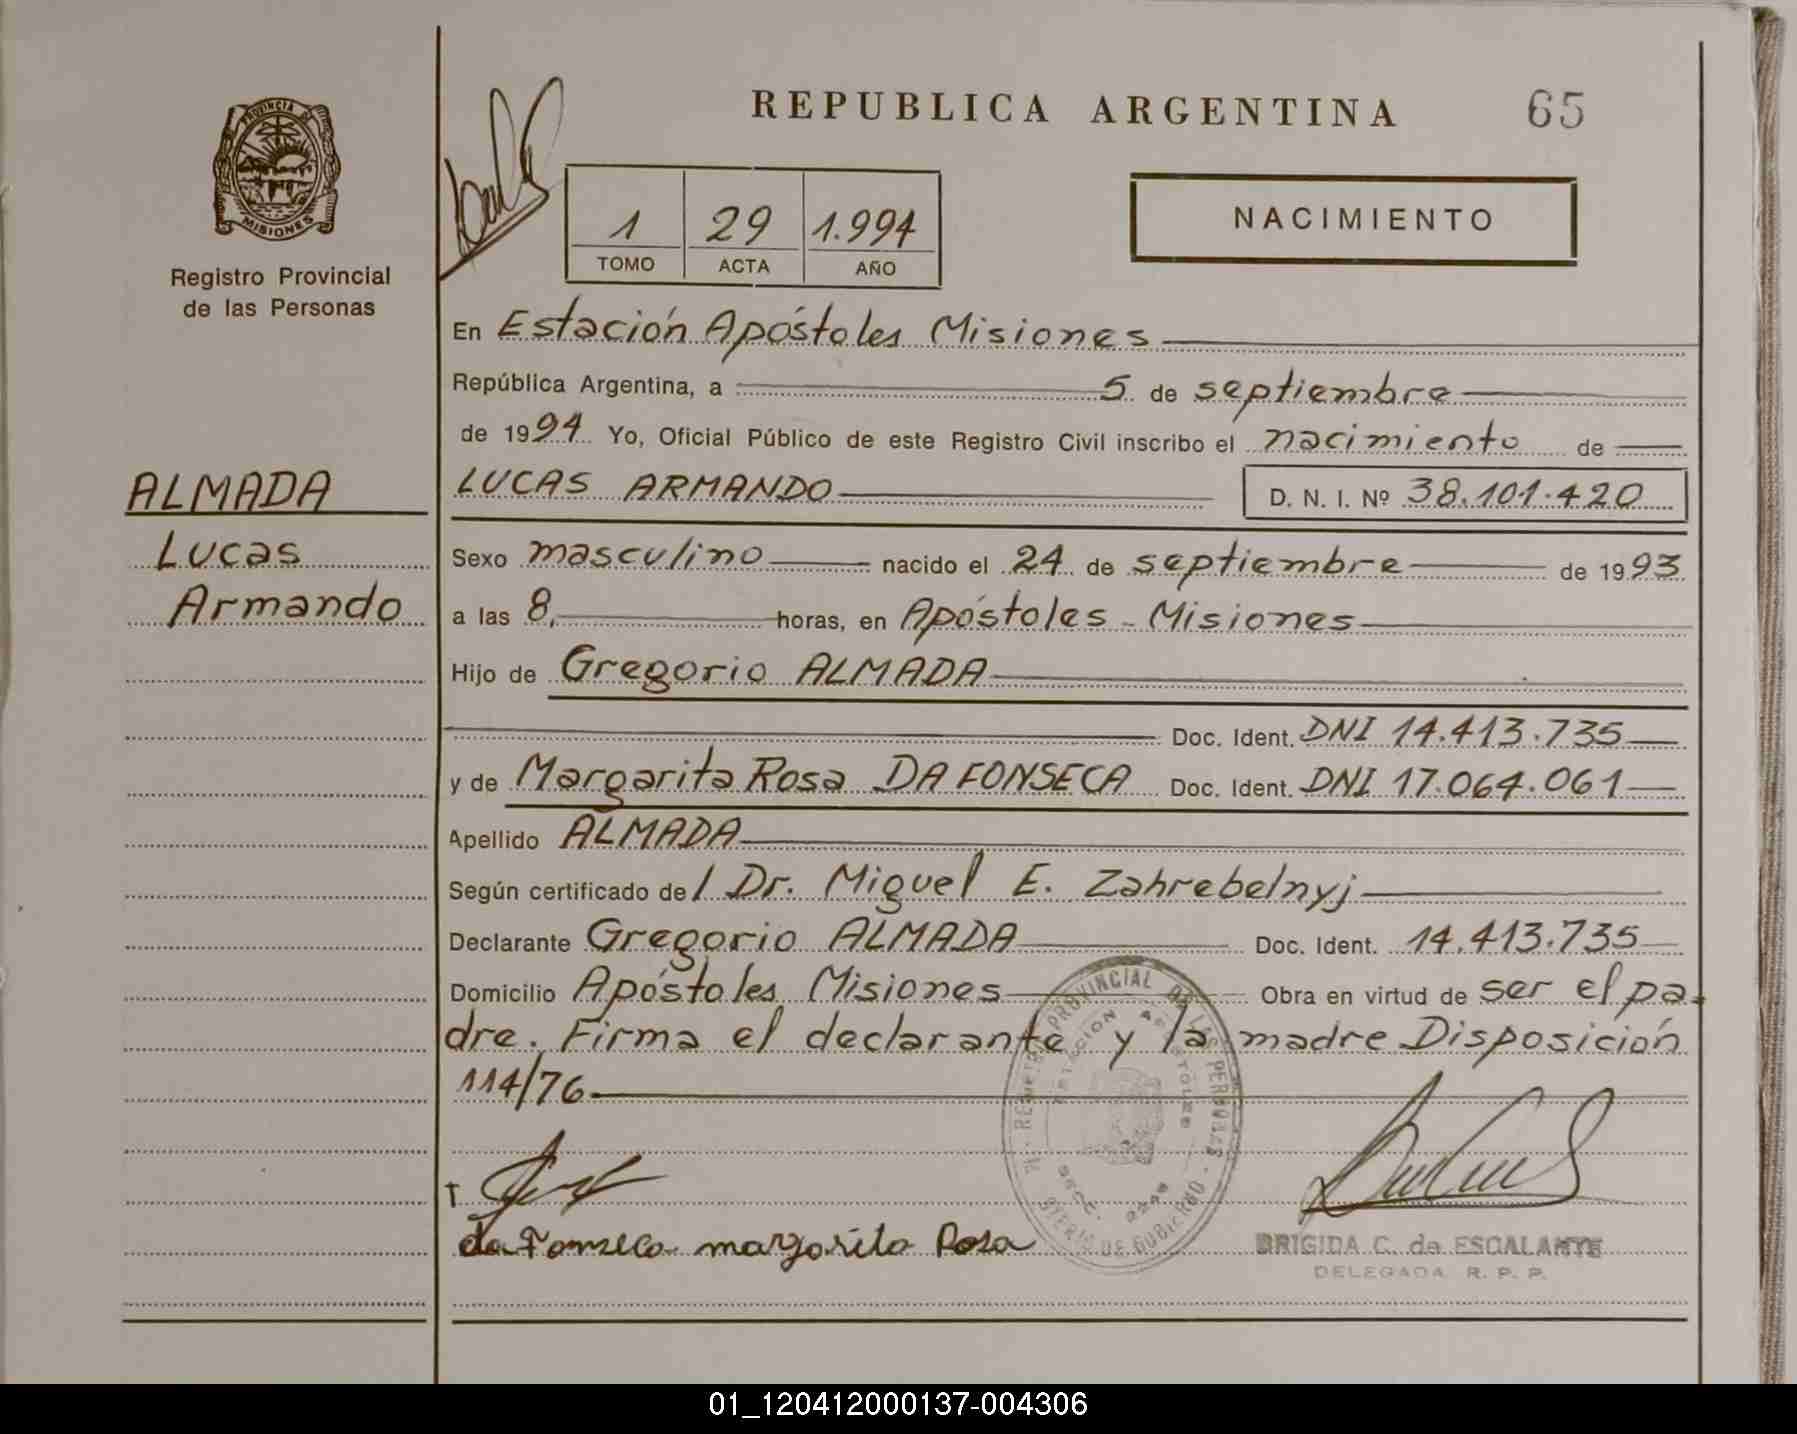 REPUBLICA ARGENTINA
65
PROVINCIA DE
MISIONES
Registro Provincial
de las Personas
1 29 1.994
TOMO ACTA AÑO
NACIMIENTO
En Estación Apóstoles Misiones
República Argentina, a 5 de septiembre
de 1994 Yo, Oficial Público de este Registro Civil inscribo el nacimiento de
LUCAS ARMANDO D. N. I. Nº 38.101.420
ALMADA
Lucas
Armando
Sexo masculino nacido el 24 de septiembre de 1993
a las 8, horas, en Apóstoles - Misiones
Hijo de Gregorio ALMADA
Doc. Ident. DNI 14.413.735
y de Margarita Rosa DA FONSECA Doc. Ident. DNI 17.064.061
Apellido ALMADA
Según certificado del Dr. Miguel E. Zahrebelnyj
Declarante Gregorio ALMADA Doc. Ident. 14.413.735
Domicilio Apóstoles Misiones Obra en virtud de ser el pa-
dre. Firma el declarante y la madre Disposición
114/76
REGISTRO PROVINCIAL DE LAS PERSONAS
ESTACION APOSTOLES
da Fonseca margarita Rosa
BRIGIDA C. de ESCALANTE
DELEGADA R. P. P.
01_120412000137-004306